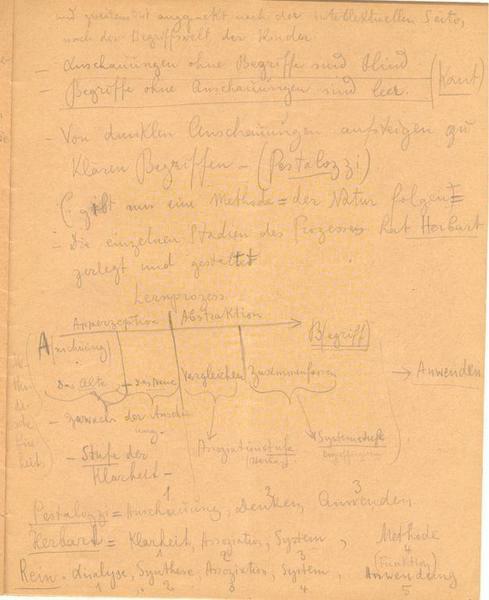 und zweitens ist angepackt nach der intellektuellen Seite,
nach der Begriffswelt der Kinder.
- Anschauungen ohne Begriffe sind blind
- Begriffe ohne Anschauungen sind leer. (Kant)
- Von dunklen Anschauungen aufsteigen zu
klaren Begriffen - (Pestalozzi)
(: gibt nur eine Methode = der Natur folgen!
- Die einzelnen Stadien des Prozesses hat Herbart
zerlegt und gestaltet
Lernprozess
Apperzeption | Abstraktion
A(nschauung) B(egriff)
Das Alte - das Neue Vergleichen Zusammenfassen → Anwenden
- der Anschau
ung.
Assoziationsstufe Systemstufe
- Stufe der (Herbart)
Klarheit -
Pestalozzi = Anschauung, Denken, Anwenden
1 2 3
Herbart = Klarheit, Assoziation, System, Methode
1 2 3 4
(Funktion)
Rein - Analyse, Synthese, Assoziation, System, Anwendung
1 2 3 4 5